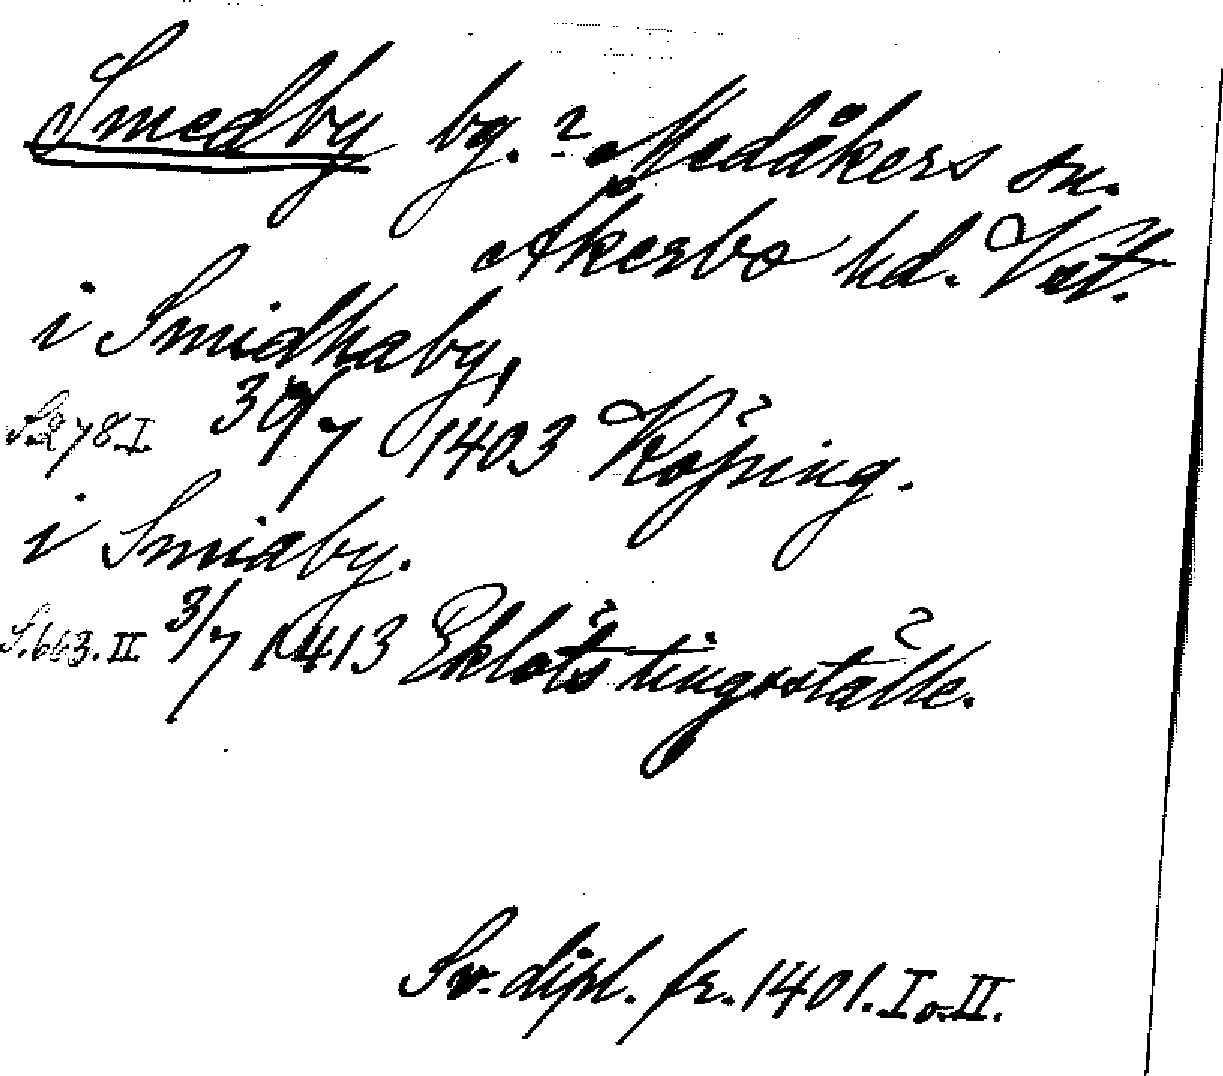 Smedby bg. ? Medåkers sn.
Åkerbo hd. Vstm.
i Smidhaby,
S.278 I. 30/7 1403 Köping.
i Smidby.
S. 663. II 3/7 1413 Eklöts tingsställe.
Sv. dipl. fr. 1401. I o. II.